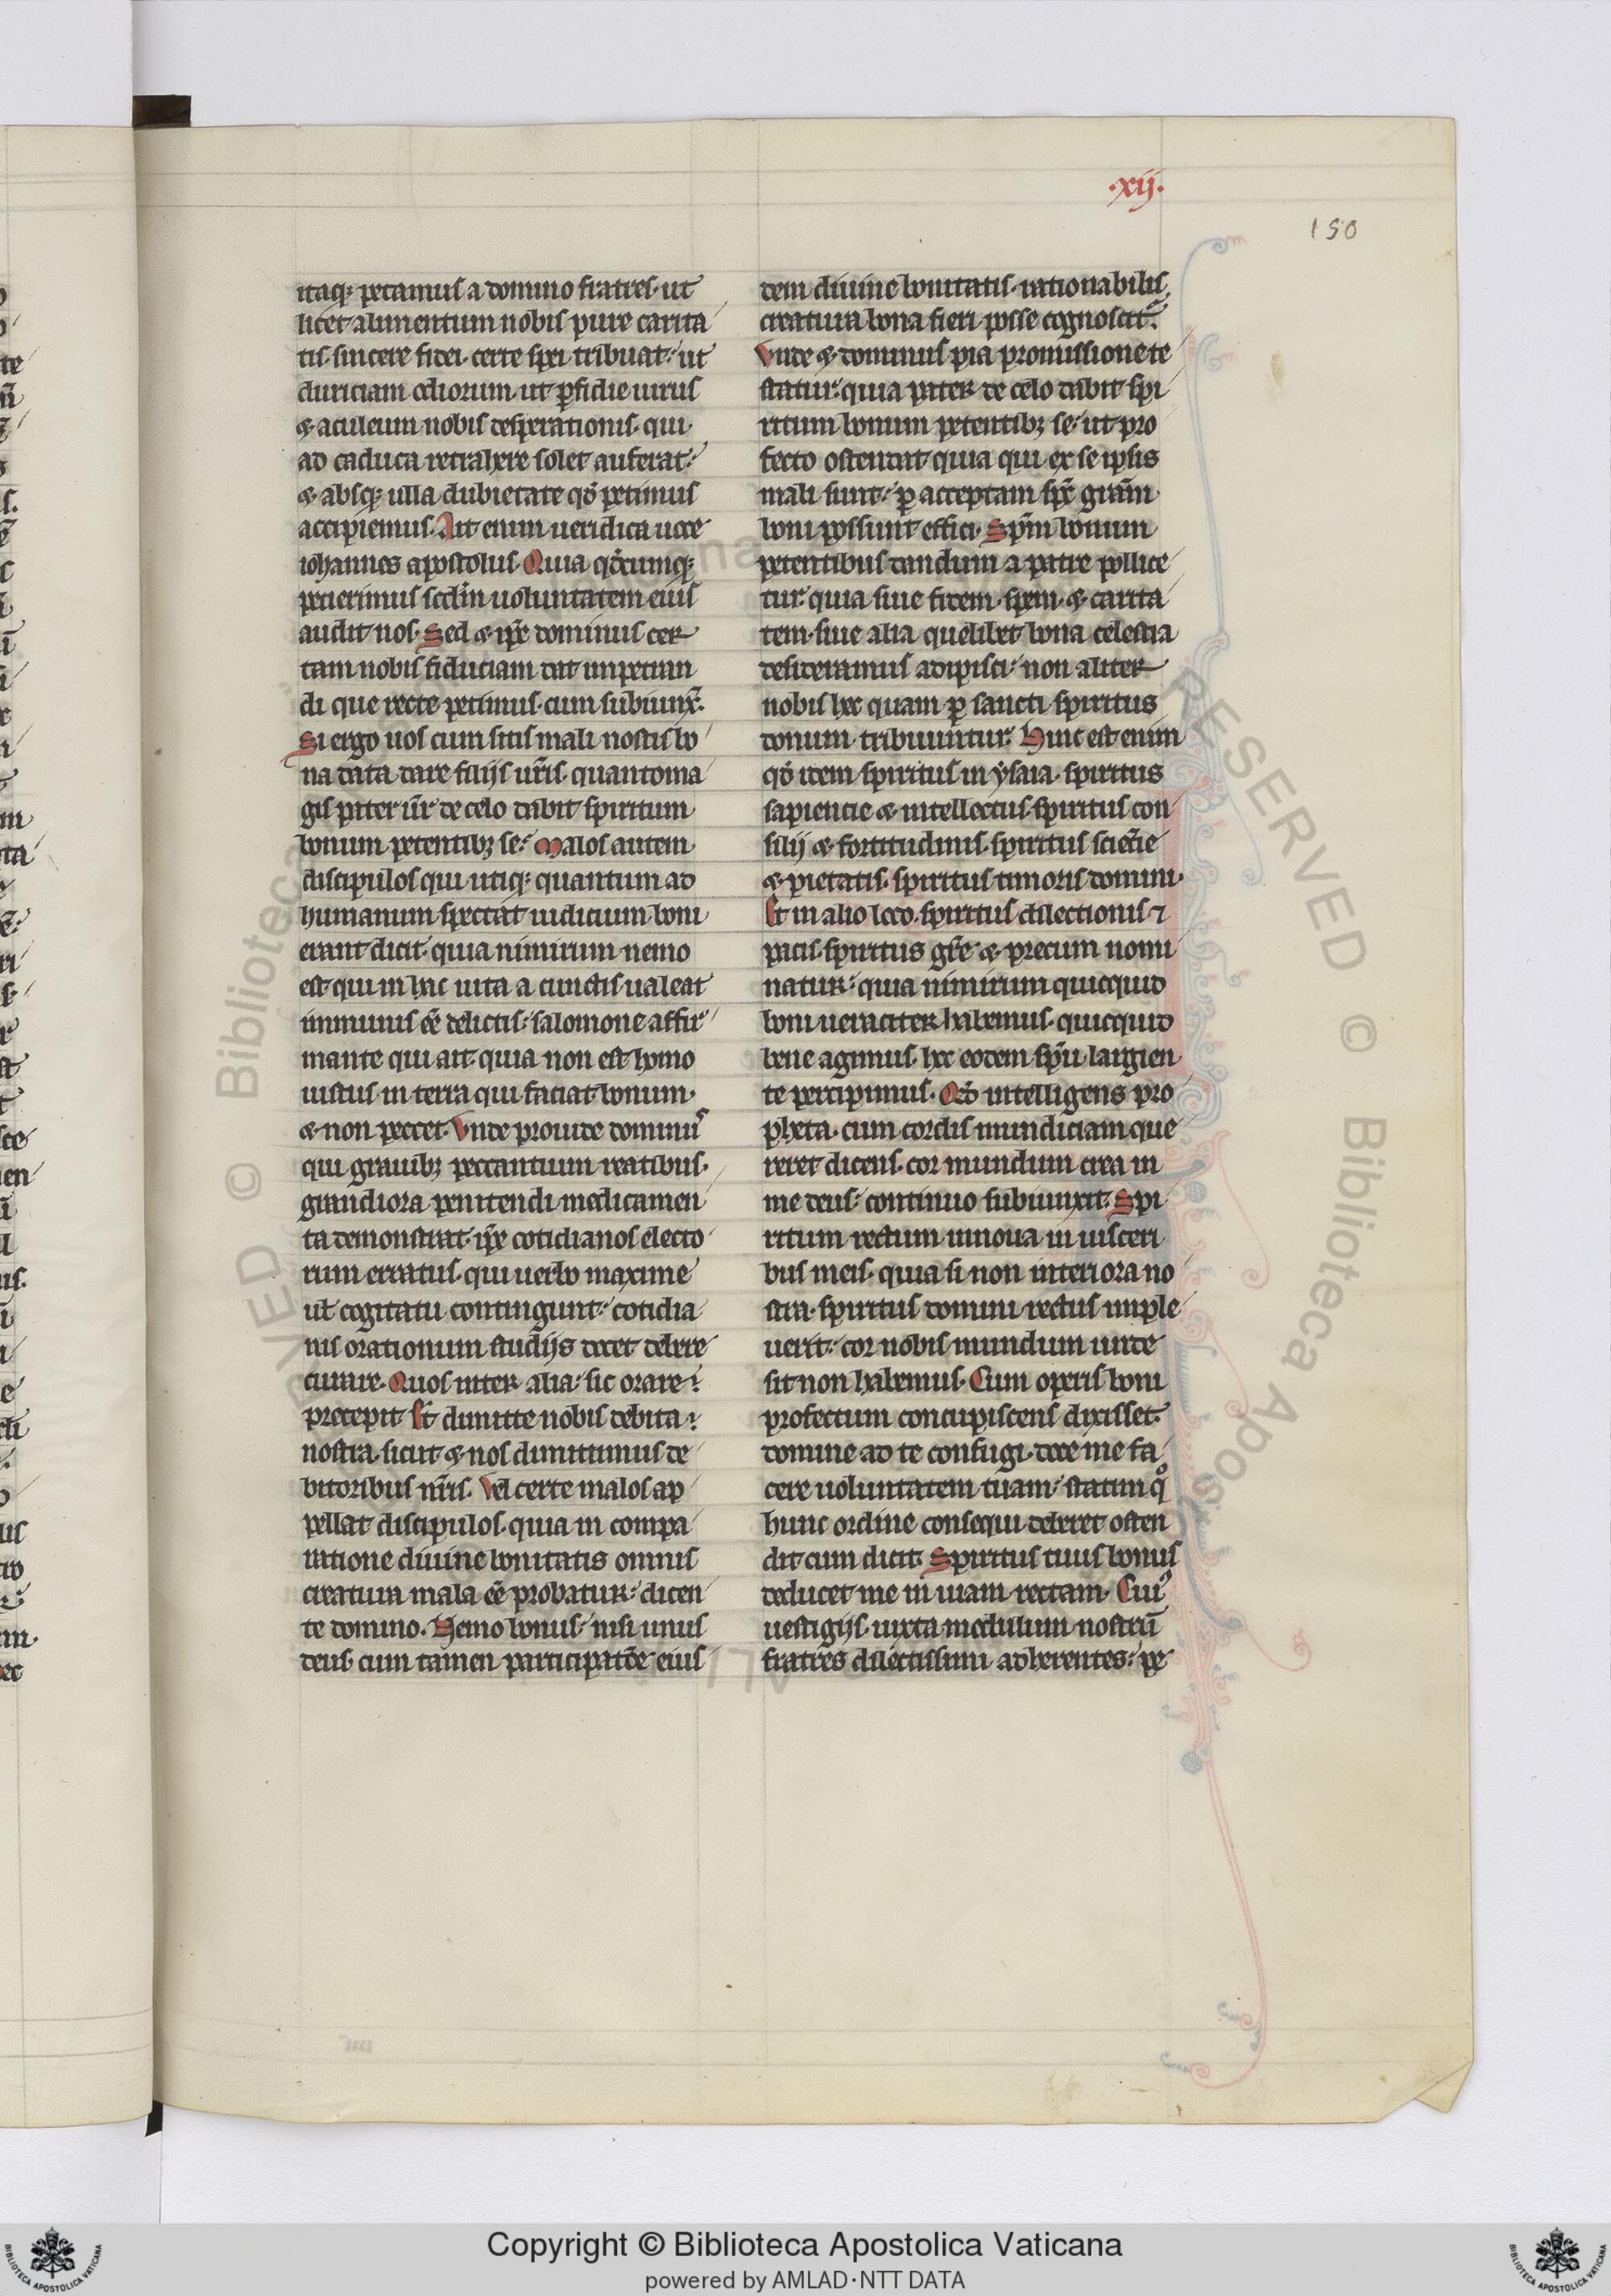 ·xij·
150
itaq; petamus a domino fratres· ut
licet alimentum nobis pure carita
tis· sincere fidei· certe spei tribuat· ut
duriciam odiorum· ut ꝑfidie uirus
& aculeum nobis desperationis· qui
ad caduca retrahere solet auferat·
& absq; ulla dubietate qd̓ petimus
accipiemus. Ait enim ueridica uoce
iohannes apostolus· Quia qd̓cumq;
petierimus scd̄m uoluntatem eius
audit nos· Sed & ip̄e dominus cer
tam nobis fiduciam dat impetran
di que recte petimus· cum subiunx̄·
Si ergo uos cum sitis mali nostis bo
na data dare filijs ur̄is· quantoma
gis pater ur̄ de celo dabit spiritum
bonum petentib; se· Malos autem
discipulos qui utiq; quantum ad
humanum spectat iudicium boni
erant dicit· quia nimirum nemo
est qui in hac uita a cunctis ualeat
immunis eē delictis· salomone affir
mante qui ait· quia non est homo
iustus in terra qui faciat bonum·
& non peccet· Vnde prouide dominu᷒
qui grauib; peccantium reatibus·
grandiora penitendi medicamen
ta demonstrat· ip̄e cotidianos electo
rum erratus· qui uerbo maxime
ul̄ cogitatu contingunt· cotidia
nis orationum studijs docet debere
curare· Quos inter alia· sic orare
precepit· Et dimitte nobis debita
nostra· sicut & nos dimittimus de
bitoribus nr̄is· Vel certe malos ap
pellat discipulos· quia in compa
ratione diuine bonitatis omnis
creatura mala eē probatur· dicen
te domino· Nemo bonus· nisi unus
deus· cum tamen participatōe eius
dem diuine bonitatis· rationabilis
creatura bona fieri posse cognoscit᷑·
Vnde & dominus pia promissione te
statur· quia pater de celo dabit spi
ritum bonum petentib; se· ut pro
fecto ostendat quia qui ex se ipsis
mali sunt· ꝑ acceptam sp̄c gr̄am
boni possunt effici· Sp̄m bonum
petentibus dandum a patre pollice
tur· quia siue fidem· spem· & carita
tem· siue alia quelibet bona celestia
desideramus adipisci· non aliter
nobis hec quam ꝑ sancti spiritus
donum tribuuntur· Hinc est enim
qd̓ idem spiritus in ysaia· spiritus
sapiencie & intellectus· spiritus con
silij & fortitudinis· spiritus sciēcie
& pietatis· spiritus timoris domini·
Et in alio loco· spiritus dilectionis ⁊
pacis· spiritus gr̄e· & precum nomi
natur· quia nimirum quicquid
boni ueraciter habemus· quicquid
bene agimus· hec eodem sp̄u largien
te percipimus· Qd̓ intelligens pro
pheta· cum cordis mundiciam que
reret dicens· cor mundum crea in
me deus· continuo subiunxit· Spi
ritum rectum innoua in uisceri
bus meis· quia si non interiora no
stra· spiritus domini rectus imple
uerit· cor nobis mundum unde
sit non habemus· Cum operis boni
profectum concupiscens dixisset·
domine ad te confugi· doce me fa
cere uoluntatem tuam· statim qͦ
hunc ordine consequi deberet osten
dit cum dicit· Spiritus tuus bonus
deducet me in uiam rectam· Cui᷒
uestigijs iuxta modulum nostrū
fratres dilectissimi adherentes· pe
Copyright © Biblioteca Apostolica Vaticana
powered by AMLAD·NTT DATA